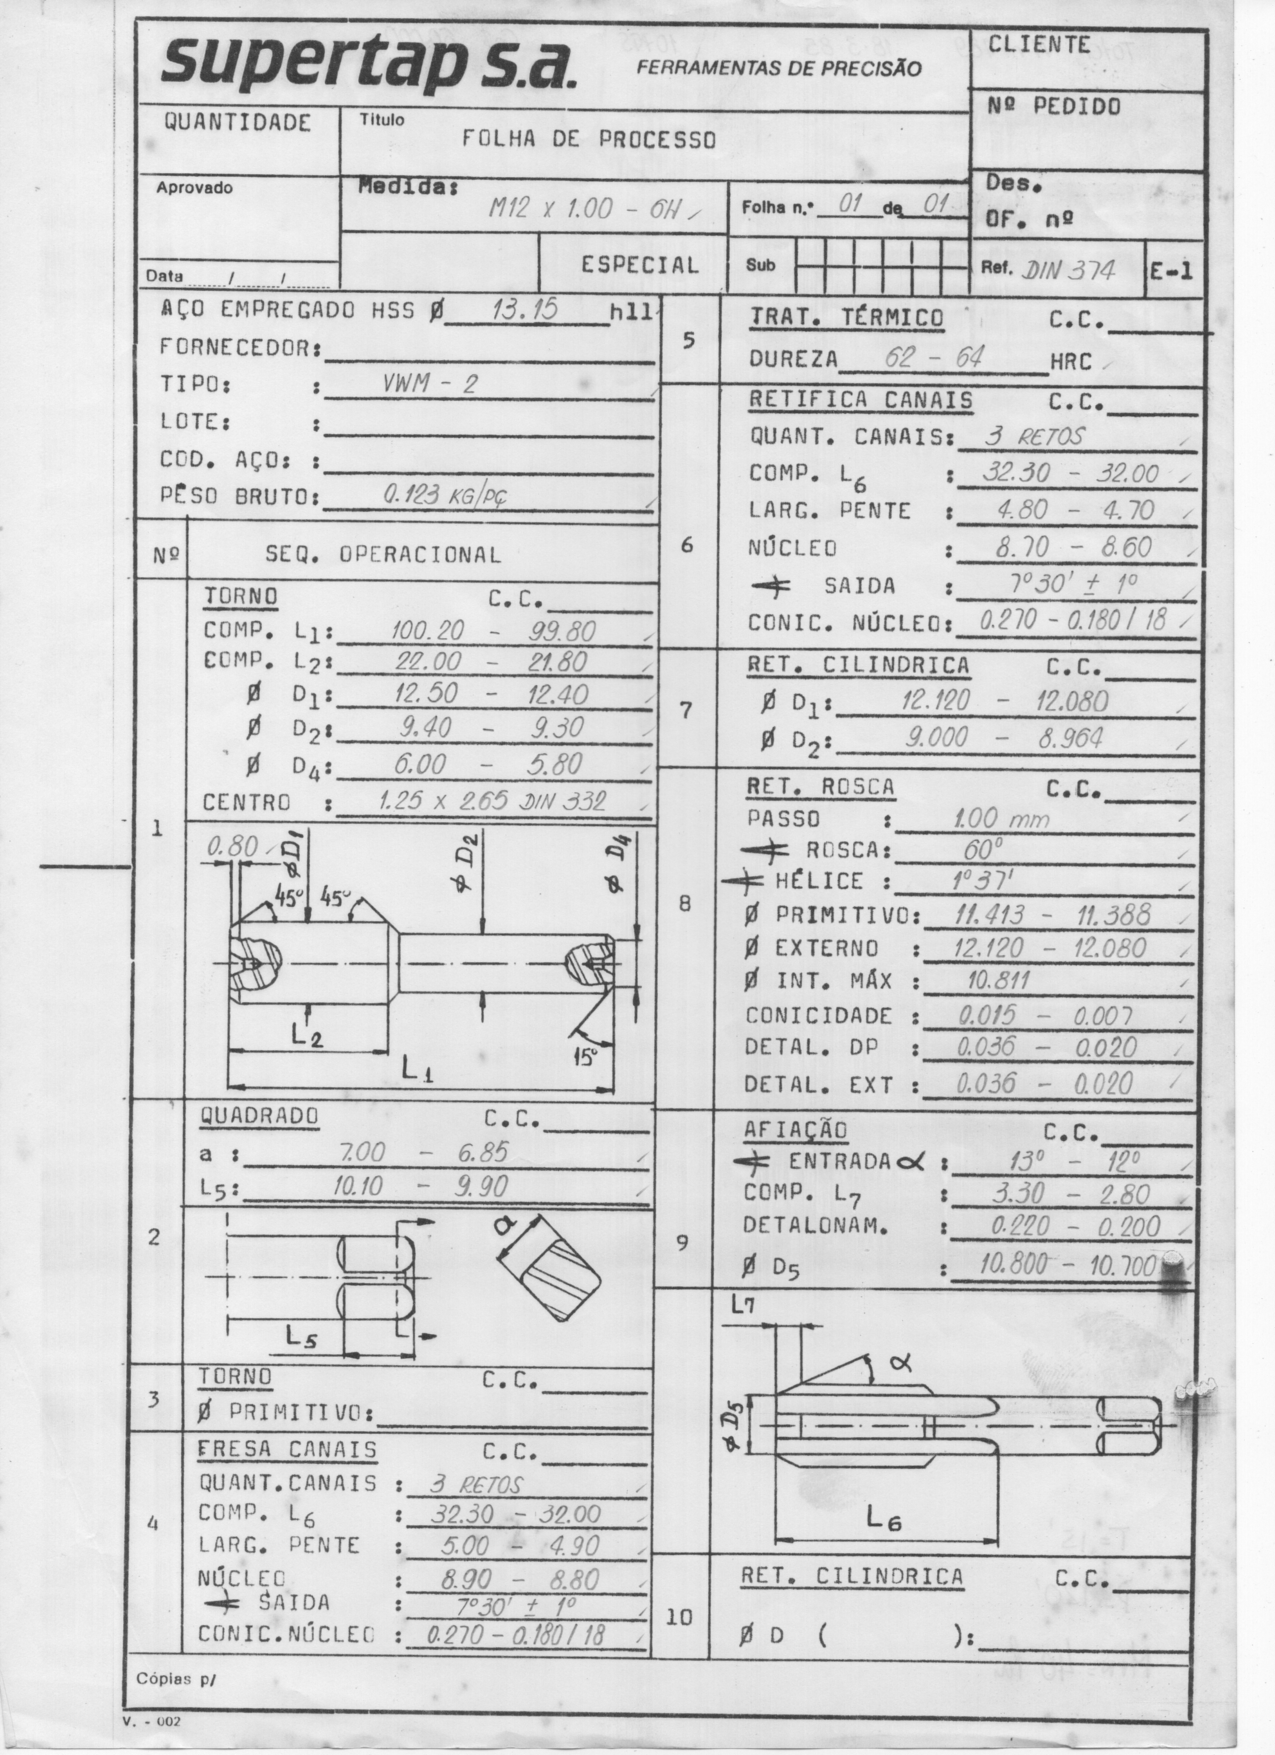 supertap s.a.
FERRAMENTAS DE PRECISÃO
CLIENTE
Nº PEDIDO
QUANTIDADE
Título
FOLHA DE PROCESSO
Aprovado
Medida:
M12 X 1.00 - 6H
Folha n.º 01 de 01
Des.
OF. nº
ESPECIAL
Sub
Ref. DIN 374
E-1
Data / /
AÇO EMPREGADO HSS Ø 13.15 h11
FORNECEDOR:
TIPO: : VWM - 2
LOTE: :
COD. AÇO: :
PÊSO BRUTO: 0.123 KG/PÇ
Nº
SEQ. OPERACIONAL
1
TORNO C.C.
COMP. L1: 100.20 - 99.80
COMP. L2: 22.00 - 21.80
Ø D1: 12.50 - 12.40
Ø D2: 9.40 - 9.30
Ø D4: 6.00 - 5.80
CENTRO : 1.25 X 2.65 DIN 332
0.80
Ø D1
Ø D2
Ø D4
45º 45º
L2
15º
L1
2
QUADRADO C.C.
a : 7.00 - 6.85
L5: 10.10 - 9.90
a
L5
3
TORNO C.C.
Ø PRIMITIVO:
4
FRESA CANAIS C.C.
QUANT.CANAIS : 3 RETOS
COMP. L6 : 32.30 - 32.00
LARG. PENTE : 5.00 - 4.90
NÚCLEO : 8.90 - 8.80
∢ SAIDA : 7º30' ± 1º
CONIC.NÚCLEO : 0.270 - 0.180 / 18
5
TRAT. TÉRMICO C.C.
DUREZA 62 - 64 HRC
6
RETIFICA CANAIS C.C.
QUANT. CANAIS: 3 RETOS
COMP. L6 : 32.30 - 32.00
LARG. PENTE : 4.80 - 4.70
NÚCLEO : 8.70 - 8.60
∢ SAIDA : 7º30' ± 1º
CONIC. NÚCLEO: 0.270 - 0.180 / 18
7
RET. CILINDRICA C.C.
Ø D1: 12.120 - 12.080
Ø D2: 9.000 - 8.964
8
RET. ROSCA C.C.
PASSO : 1.00 mm
∢ ROSCA: 60º
∢ HÉLICE : 1º37'
Ø PRIMITIVO: 11.413 - 11.388
Ø EXTERNO : 12.120 - 12.080
Ø INT. MÁX : 10.811
CONICIDADE : 0.015 - 0.007
DETAL. DP : 0.036 - 0.020
DETAL. EXT : 0.036 - 0.020
9
AFIAÇÃO C.C.
∢ ENTRADA α : 13º - 12º
COMP. L7 : 3.30 - 2.80
DETALONAM. : 0.220 - 0.200
Ø D5 : 10.800 - 10.700
L7
α
Ø D5
L6
10
RET. CILINDRICA C.C.
Ø D ( ):
Cópias p/
V. - 002